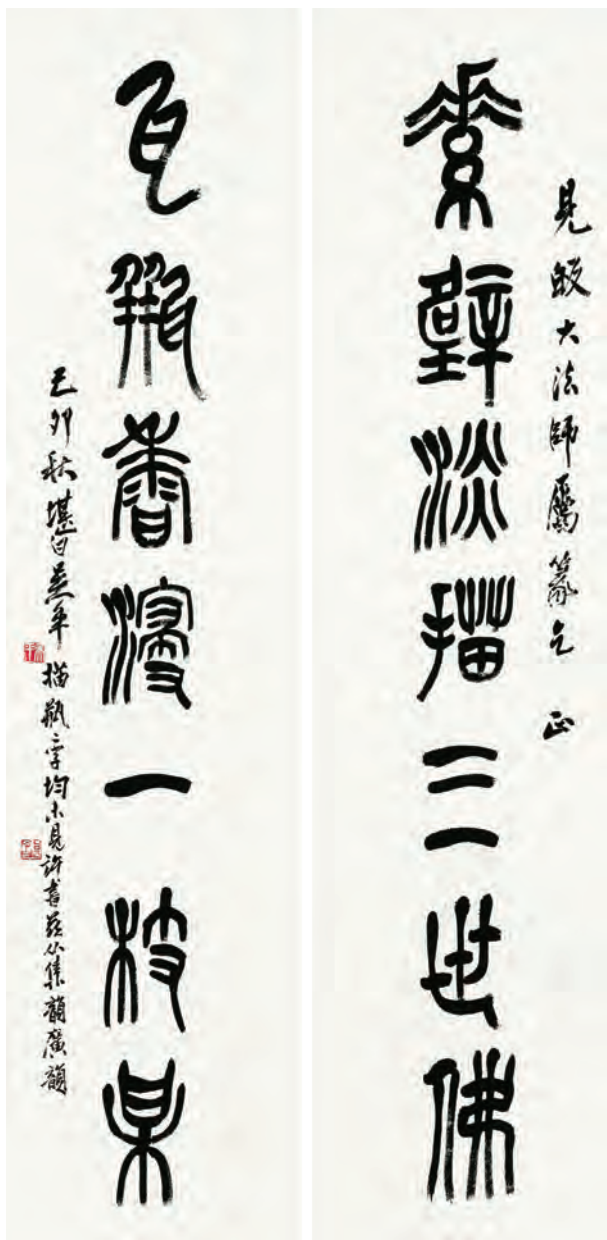 見 大法師屬篆乞 正
素壁淡描三世佛
瓦瓶香浸一枝某
己卯秋 描瓶字均未見許書茲从集韻廣韻